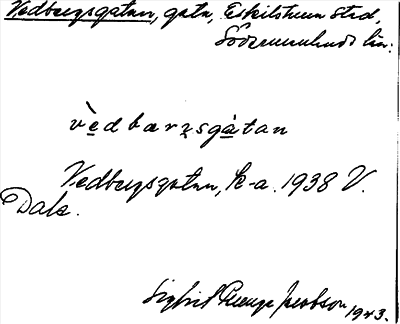 Vedbergsgatan, gata, Eskilstuna stad,
Södermanlands län.
vèdbærzsgàtan
Vedbergsgatan, k-a. 1938 V.
Dala.
Sigfrid Svenge Jacobson 1943.